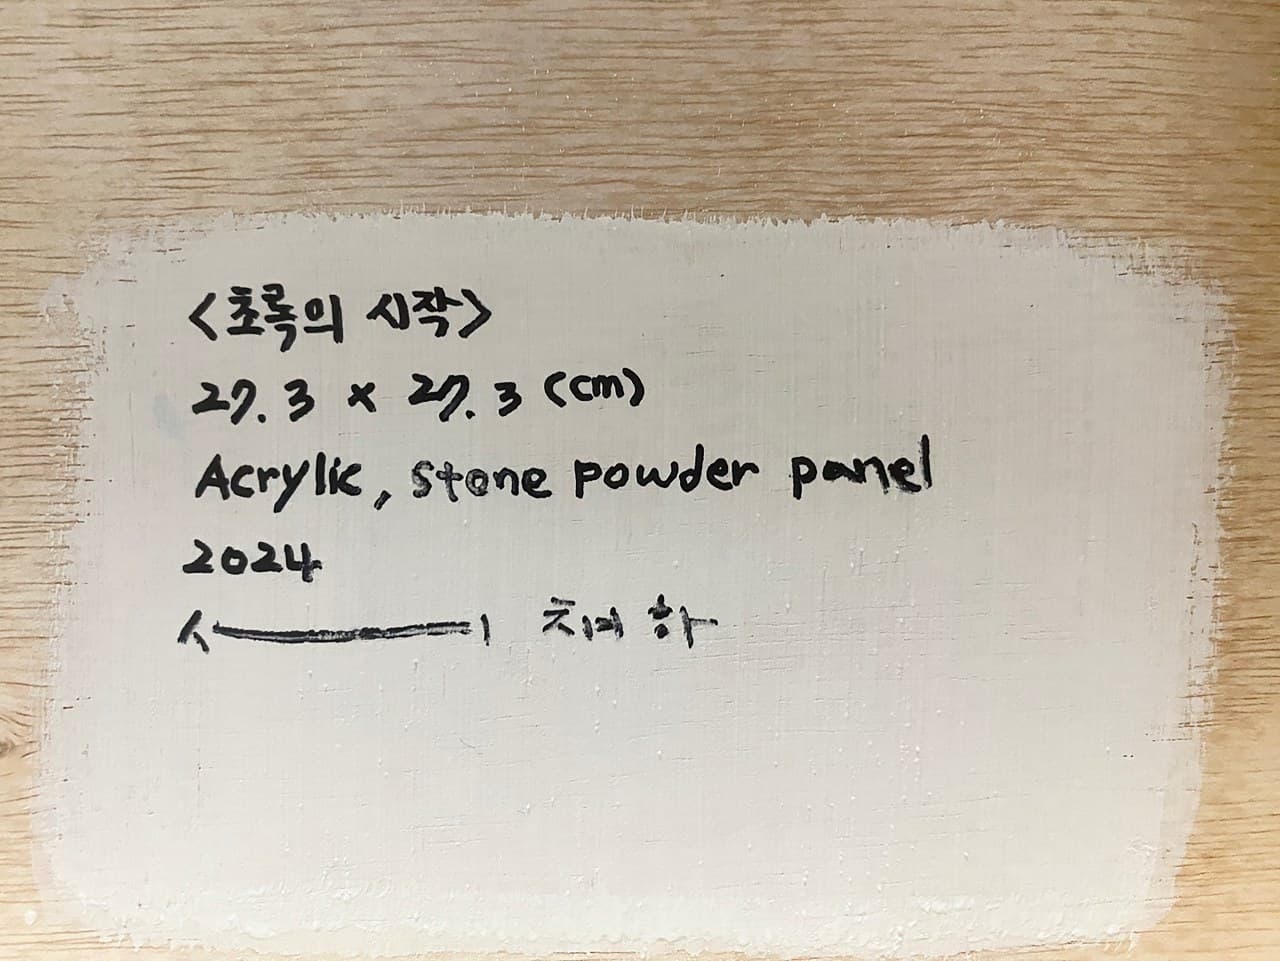 <초록의 시작>
27.3 x 27.3 (cm)
Acrylic, stone powder panel
2024